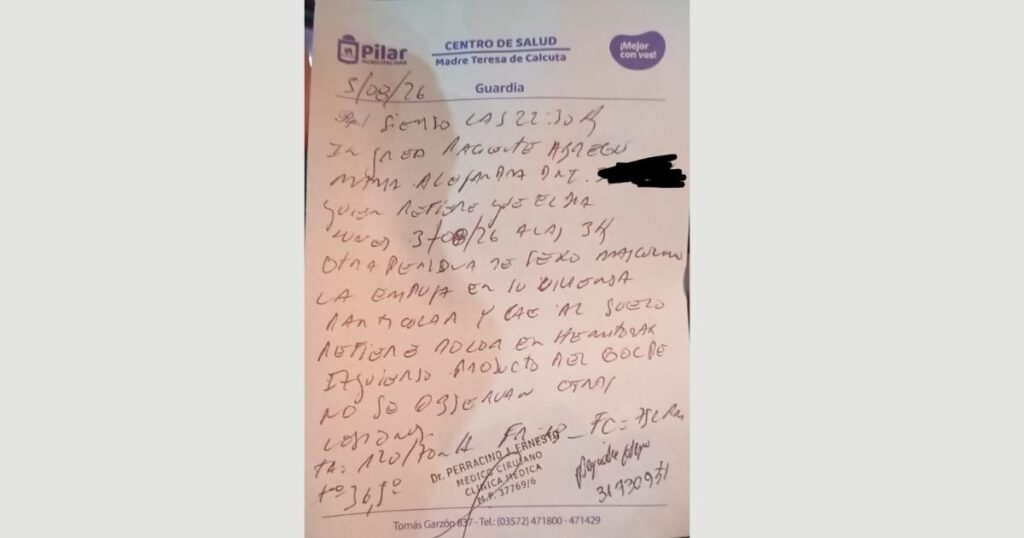 Pilar
MUNICIPALIDAD
CENTRO DE SALUD
Madre Teresa de Calcuta
¡Mejor
con vos!
Guardia
5/08/26
Rp./ SIENDO LAS 22:30 H
INGRESA PACIENTE
ALEJANDRA DNI.
QUIEN REFIERE QUE EL DIA
LUNES 3/08/26 A LAS 3 H
OTRA PERSONA DE SEXO MASCULINO
LA EMPUJA EN SU VIVIENDA
PARTICULAR Y CAE AL SUELO
REFIERE DOLOR EN HEMITORAX
IZQUIERDO PRODUCTO DEL GOLPE
NO SE OBSERVAN OTRAS
LESIONES.
TA: 120/70 FC=
Tº 36,5º
Dr. PERRACINO J. ERNESTO
MEDICO CIRUJANO
CLINICA MEDICA
M.P. 37769/6
Tomás Garzón 837 - Tel.: (03572) 471800 - 471429